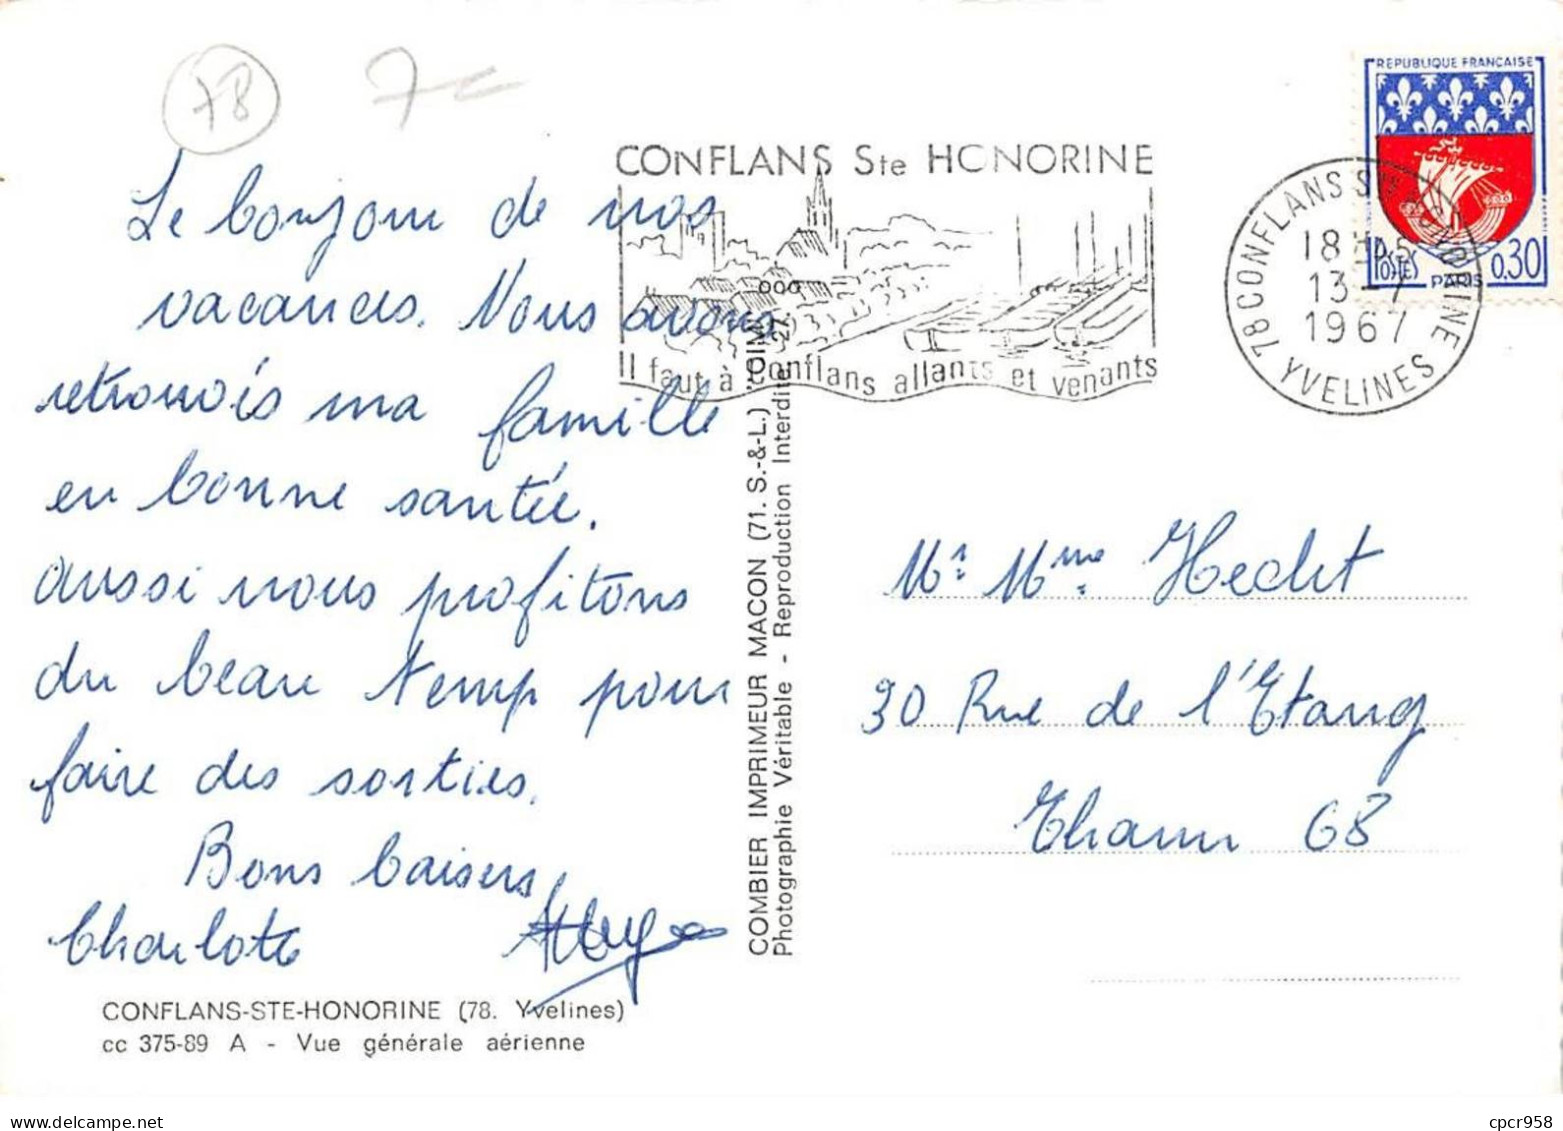 78
7
Le bonjour de nos
vacances. Nous avons
retrouvés ma famille
en bonne santée.
aussi nous profitons
du beau temp pour
faire des sorties.
Bons baisers
Charlotte
CONFLANS-STE-HONORINE (78. Yvelines)
cc 375-89 A - Vue générale aérienne
COMBIER IMPRIMEUR MACON (71. S.-&-L.) "CIM"
Photographie Véritable - Reproduction Interdite
CONFLANS Ste HONORINE
Il faut à Conflans allants et venants
78 CONFLANS Ste HONORINE
18H
13-7
1967
YVELINES
REPUBLIQUE FRANÇAISE
POSTES
PARIS
0,30
Mr. Mme. Hecht
30 Rue de l'Etang
Thann 68
cpcr958